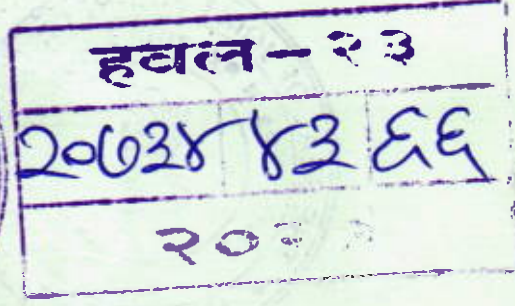 हवल - २३
२०७३४ ४३ ६६